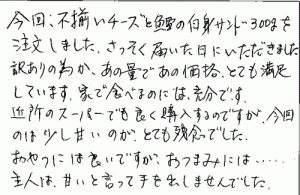 今回、不揃いチーズと鱈の白身サンド300gを
注文しました。さっそく届いた日にいただきました
訳ありの為か、あの量であの価格、とても満足
しています。家で食べるのには、充分です。
近所のスーパーでも良く購入するのですが、今回
のは少し甘いのが、とても残念でした。
おやつには良いですが、おつまみには……
主人は、甘いと言って手を出しませんでした。